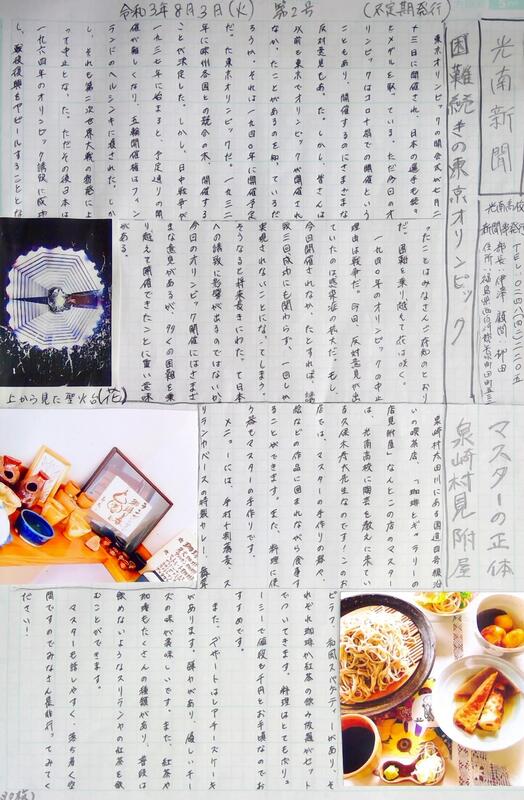 令和3年8月3日(火) 第2号 (不定期発行)
光南新聞
光南高校
困難続きの東京オリンピック
東京オリンピックの開会式が七月二
十三日に開催され、日本の選手も続々
とメダルを取っている。ただ今回のオ
リンピックはコロナ禍での開催という
こともあり、開催するのにさまざまな
反対意見もあった。しかし、皆さんは
以前も東京でオリンピックが開催され
なかったことがあるのを知っているだ
ろうか。それは一九四〇年に開催予定
だった東京オリンピックだ。一九三二
年に欧州各国との競合の末、開催する
ことが決定した。しかし、日中戦争が
一九三七年に始まると、予定通りの開
催が難しくなり、五輪開催権はフィン
ランドのヘルシンキに渡された。しか
し、それも第二次世界大戦の影響によ
って中止となった。ただその後日本は
一九六四年のオリンピック誘致に成功
し、戦後復興をアピールすることとな
ったことはみなさんご存知のとおり
だ。困難を乗り越えて花は咲く。
一九四〇年のオリンピックの中止
理由は戦争だ。今回、反対意見が出
ていたのは感染症の拡大だ。もし、
今回開催されなかったとすれば、誘
致三回成功にも関わらず、一回しか
実現されないことになってしまう。
そうなると将来長きにわたって日本
への誘致に影響が出るのではないか。
今回のオリンピック開催にはさまざ
まな意見があるが、多くの困難を乗
り越えて開催できたことに重い意味
がある。
上から見た聖火台(花)
マスターの正体
泉崎村見附屋
泉崎村太田川にある国道四号線沿
いの喫茶店、「珈琲とギャラリーの
店見附屋」なんとこの店のマスター
は、光南高校に陶芸を教えに来てい
る久保木彦夫先生なのです!このお
店では、マスターの手作りの器や、
絵などの作品に囲まれながら食事す
ることができます。また、料理に使
う器もマスターの手作りです。
メニューには、手打ち十割蕎麦、ス
リランカベースの特製カレー、海老
ピラフ、和風スパゲティーがあり、そ
れぞれ珈琲か紅茶の飲み放題がセット
でついてきます。料理はとてもボリュ
ーミーで値段も千円とお手頃なのでお
すすめです。
また、デザートはレアチーズケーキ
があります。酸味があり、優しいチー
ズの味が美味しいです。また、紅茶や
珈琲もたくさんの種類があり、普段は
飲めないようなスリランカの紅茶を飲
むことができます。
マスターも話しやすく、落ち着く空
間ですのでみなさん是非行ってみてく
ださい!